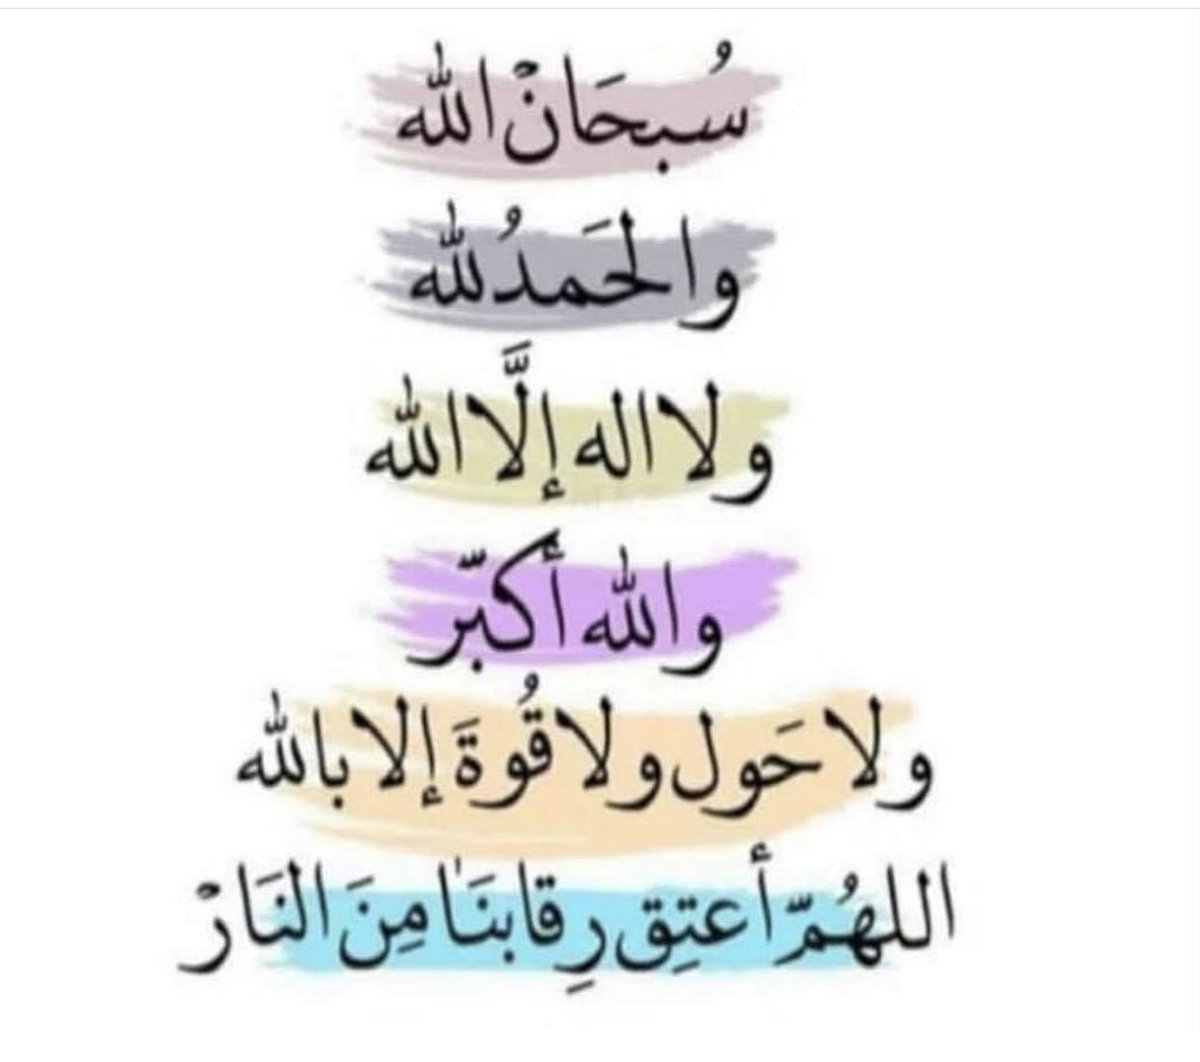 سُبحَانْ الله
والحَمدُلله
ولا اله إلَّا الله
والله أكبّر
ولا حَول ولا قُوةَ إلا بالله
اللهُمّ أعتِق رِقابنَا مِنَ النَارْ